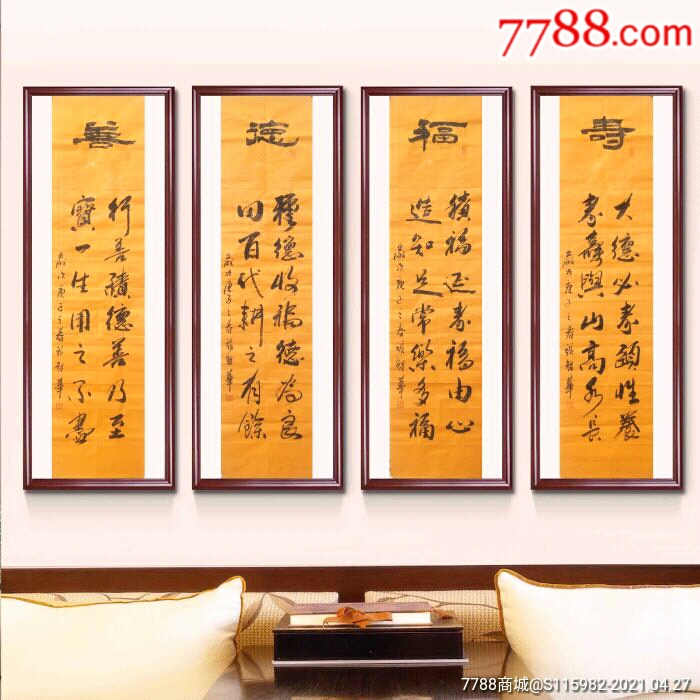 7788.com
壽
大德必寿頤性養
與山高水長
歲次庚子之春
福
積福延寿福由心
造知足常樂多福
歲次庚子之春
德
種德收福德為良
田百代耕之有餘
歲次庚子之春
善
行善積德善乃至
寶一生用之不盡
歲次庚子之春
7788商城@S115982-2021.04.27